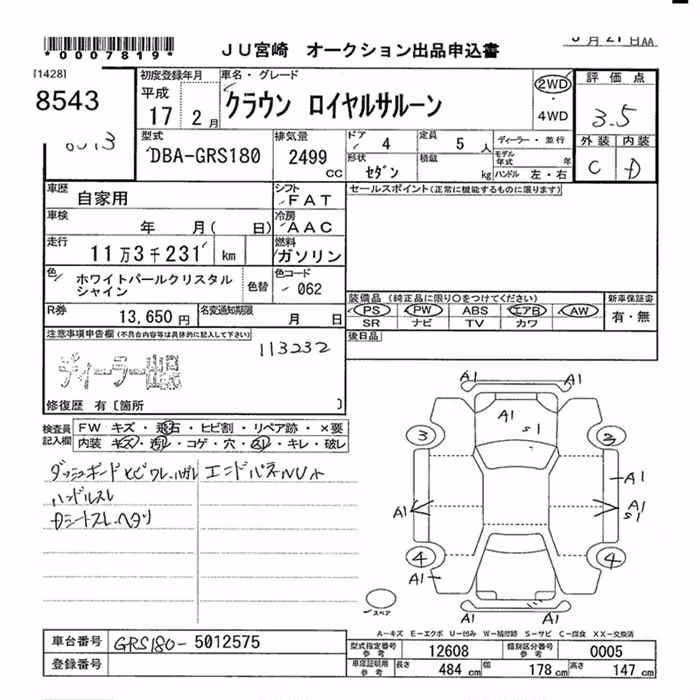 *0007819*
JU宮崎 オークション出品申込書
月 21 日AA
[1428]
8543
初度登録年月
平成
17 2月
車名・グレード
クラウン ロイヤルサルーン
2WD
・
4WD
評価点
3.5
外装 内装
C D
型式
DBA-GRS180
排気量
2499
CC
ドア 4
形状 セダン
定員 5 人
積載 kg
ディーラー・並行
モデル年式 年
ハンドル 左・右
車歴
自家用
シフト
FAT
セールスポイント(正常に機能するものに限ります)
車検
年 月( 日)
冷房
AAC
走行
11万3千231 km
燃料
ガソリン
色
ホワイトパールクリスタル
シャイン
色替
色コード
062
R券
13,650 円
名変通知期限
月 日
装備品 (純正品に限り○をつけてください)
PS PW ABS エアB AW
SR ナビ TV カワ
新車保証書
有・無
後日品
注意事項申告欄 (不具合内容等は具体的に記入して下さい)
113232
ディーラー出品
修復歴 有 [箇所 ]
検査員
記入欄
FW キズ・飛石・ヒビ割・リペア跡・×要
内装 キズ・汚レ・コゲ・穴・スレ・キレ・破レ
ダッシュボードヒビワレ.ハガレ
ハンドルスレ
Dシートスレ.ヘタリ
エンドパネルU大
A1 A1
A1 S1
3 3
A1
A1 A1
S1
4 4
A1
A1 A1
スペア
A―キズ E―エクボ U―凹み W―補修跡 S―サビ C―腐食 XX―交換済
車台番号
GRS180-5012575
登録番号
型式指定番号 参考
12608
類別区分番号 参考
0005
車庫証明用 参考
長さ 484 cm
幅 178 cm
高さ 147 cm